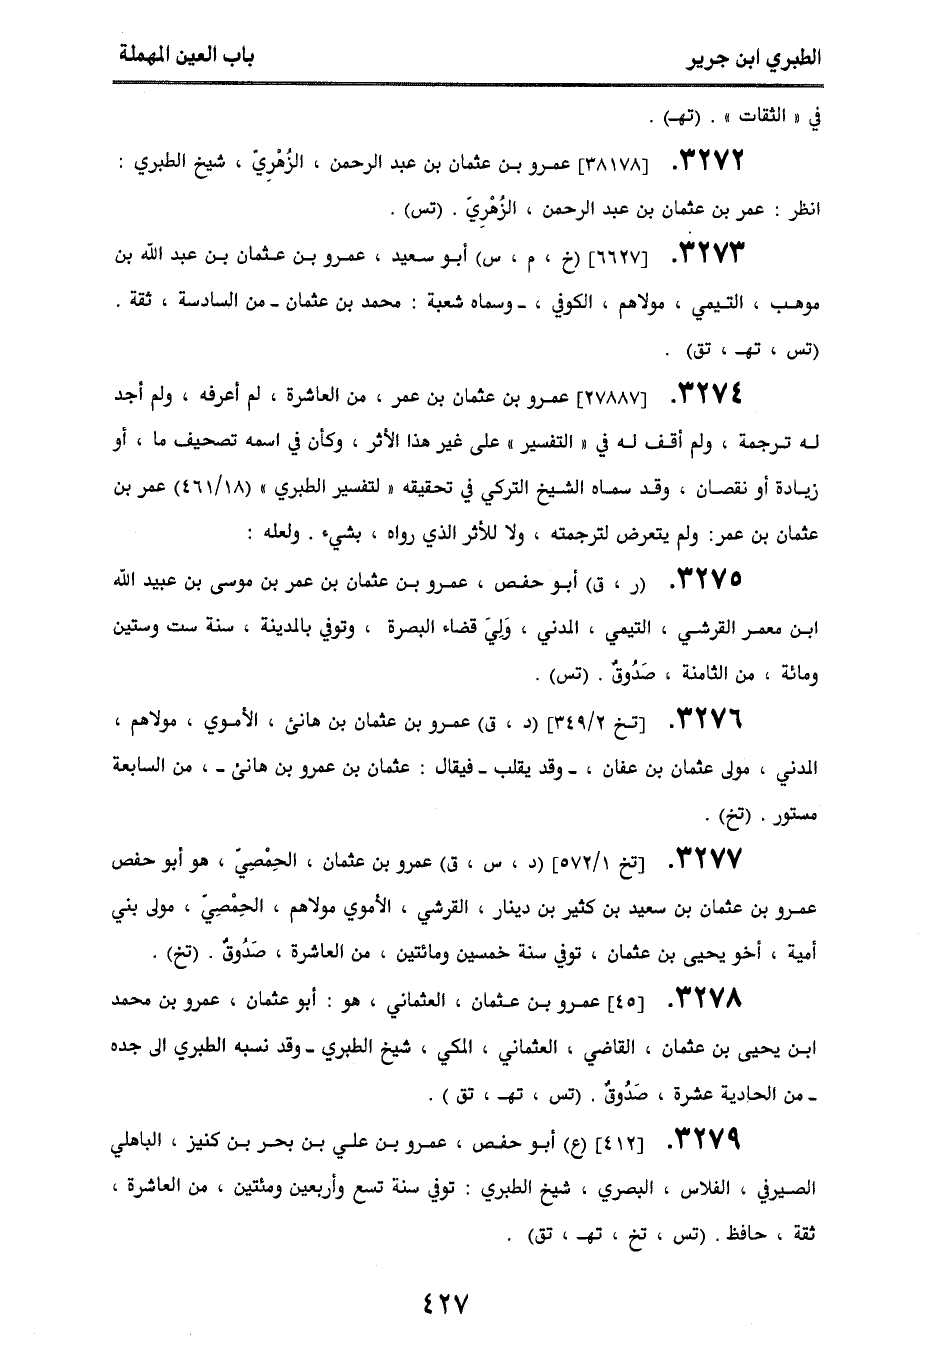 الطبري ابن جرير
باب العين المهملة
في « الثقات » . (تهـ) .
٣٢٧٢. [٣٨١٧٨] عمرو بن عثمان بن عبد الرحمن ، الزُهْرِيّ ، شيخ الطبري :
انظر : عمر بن عثمان بن عبد الرحمن ، الزُهْرِيّ . (تس) .
٣٢٧٣. [٦٦٢٧] (خ ، م ، س) أبو سعيد ، عمرو بن عثمان بن عبد الله بن
موهب ، التيمي ، مولاهم ، الكوفي ، ـ وسماه شعبة : محمد بن عثمان ـ من السادسة ، ثقة .
(تس ، تهـ ، تق) .
٣٢٧٤. [٢٧٨٨٧] عمرو بن عثمان بن عمر ، من العاشرة ، لم أعرفه ، ولم أجد
له ترجمة ، ولم أقف له في « التفسير » على غير هذا الأثر ، وكأن في اسمه تصحيف ما ، أو
زيادة أو نقصان ، وقد سماه الشيخ التركي في تحقيقه « لتفسير الطبري » (٤٦١/١٨) عمر بن
عثمان بن عمر: ولم يتعرض لترجمته ، ولا للأثر الذي رواه ، بشيء . ولعله :
٣٢٧٥. (ر ، ق) أبو حفص ، عمرو بن عثمان بن عمر بن موسى بن عبيد الله
ابن معمر القرشي ، التيمي ، المدني ، وَلِيَ قضاء البصرة ، وتوفي بالمدينة ، سنة ست وستين
ومائة ، من الثامنة ، صَدُوقٌ . (تس) .
٣٢٧٦. [تخ ٣٤٩/٢] (د ، ق) عمرو بن عثمان بن هانئ ، الأموي ، مولاهم ،
المدني ، مولى عثمان بن عفان ، ـ وقد يقلب ـ فيقال : عثمان بن عمرو بن هانئ ـ ، من السابعة
مستور . (تخ) .
٣٢٧٧. [تخ ٥٧٢/١] (د ، س ، ق) عمرو بن عثمان ، الحِمْصِيّ ، هو أبو حفص
عمرو بن عثمان بن سعيد بن كثير بن دينار ، القرشي ، الأموي مولاهم ، الحِمْصِيّ ، مولى بني
أمية ، أخو يحيى بن عثمان ، توفي سنة خمسين ومائتين ، من العاشرة ، صَدُوقٌ . (تخ) .
٣٢٧٨. [٤٥] عمرو بن عثمان ، العثماني ، هو : أبو عثمان ، عمرو بن محمد
ابن يحيى بن عثمان ، القاضي ، العثماني ، المكي ، شيخ الطبري ـ وقد نسبه الطبري الى جده
ـ من الحادية عشرة ، صَدُوقٌ . (تس ، تهـ ، تق ) .
٣٢٧٩. [٤١٢] (ع) أبو حفص ، عمرو بن علي بن بحر بن كنيز ، الباهلي
الصيرفي ، الفلاس ، البصري ، شيخ الطبري : توفي سنة تسع وأربعين ومئتين ، من العاشرة ،
ثقة ، حافظ . (تس ، تخ ، تهـ ، تق) .
٤٢٧